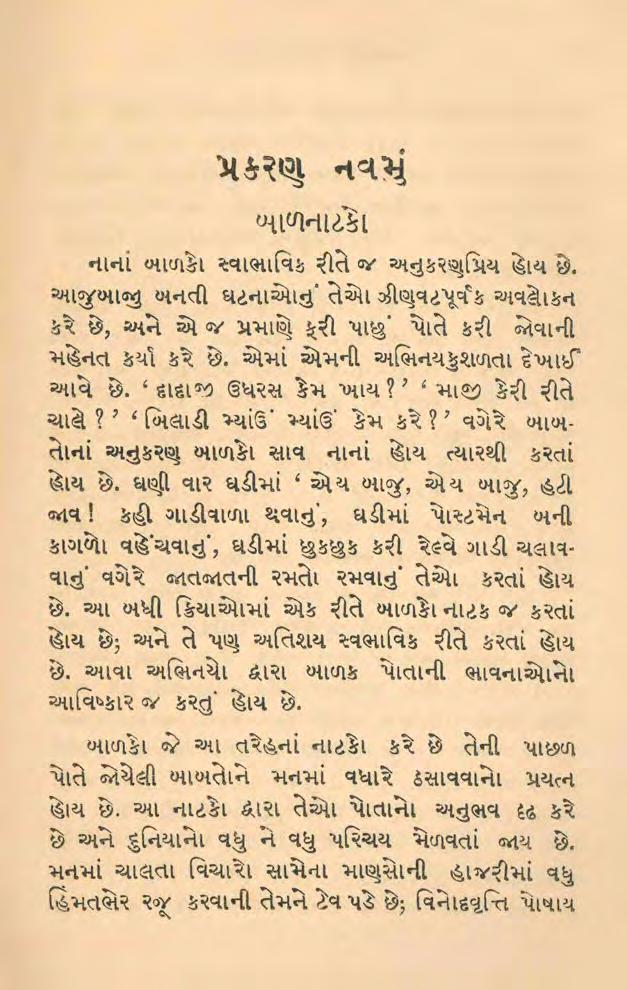 પ્રકરણ નવમું
બાળનાટકો
નાનાં બાળકો સ્વાભાવિક રીતે જ અનુકરણપ્રિય હોય છે.
આજુબાજુ બનતી ઘટનાઓનું તેઓ ઝીણવટપૂર્વક અવલોકન
કરે છે, અને એ જ પ્રમાણે ફરી પાછું પોતે કરી જોવાની
મહેનત કર્યા કરે છે. એમાં એમની અભિનયકુશળતા દેખાઈ
આવે છે. ‘ દાદાજી ઉધરસ કેમ ખાય ? ’ ‘ માજી કેરી રીતે
ચાલે ? ’ ‘ બિલાડી મ્યાંઉં મ્યાંઉં કેમ કરે ? ’ વગેરે બાબ-
તોનાં અનુકરણ બાળકો સાવ નાનાં હોય ત્યારથી કરતાં
હોય છે. ઘણી વાર ઘડીમાં ‘ એય બાજુ, એય બાજુ, હટી
જાવ ! કહી ગાડીવાળા થવાનું, ઘડીમાં પોસ્ટમેન બની
કાગળો વહેંચવાનું, ઘડીમાં છુકછુક કરી રેલ્વે ગાડી ચલાવ-
વાનું વગેરે જાતજાતની રમતો રમવાનું તેઓ કરતાં હોય
છે. આ બધી ક્રિયાઓમાં એક રીતે બાળકો નાટક જ કરતાં
હોય છે; અને તે પણ અતિશય સ્વભાવિક રીતે કરતાં હોય
છે. આવા અભિનયો દ્વારા બાળક પોતાની ભાવનાઓનો
આવિષ્કાર જ કરતું હોય છે.
બાળકો જે આ તરેહનાં નાટકો કરે છે તેની પાછળ
પોતે જોયેલી બાબતોને મનમાં વધારે ઠસાવવાનો પ્રયત્ન
હોય છે. આ નાટકો દ્વારા તેઓ પોતાનો અનુભવ દૃઢ કરે
છે અને દુનિયાનો વધુ ને વધુ પરિચય મેળવતાં જાય છે.
મનમાં ચાલતા વિચારો સામેના માણસોની હાજરીમાં વધુ
હિંમતભેર રજૂ કરવાની તેમને ટેવ પડે છે; વિનોદવૃત્તિ પોષાય